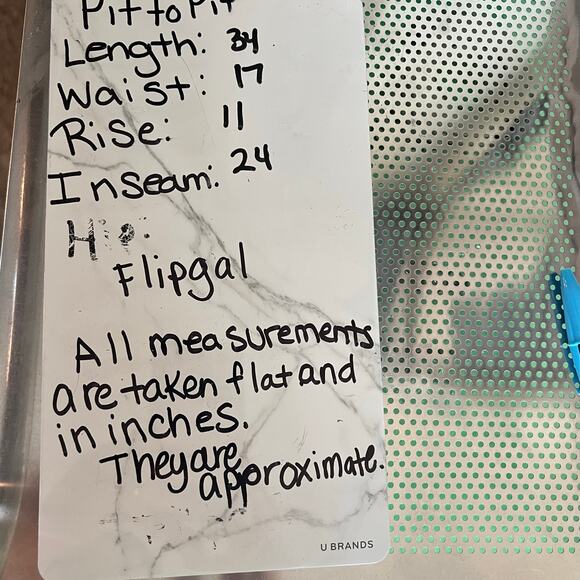 Pit to Pit
Length: 34
Waist: 17
Rise: 11
Inseam: 24
Hip:
Flipgal
All measurements
are taken flat and
in inches.
They are
approximate.
U BRANDS